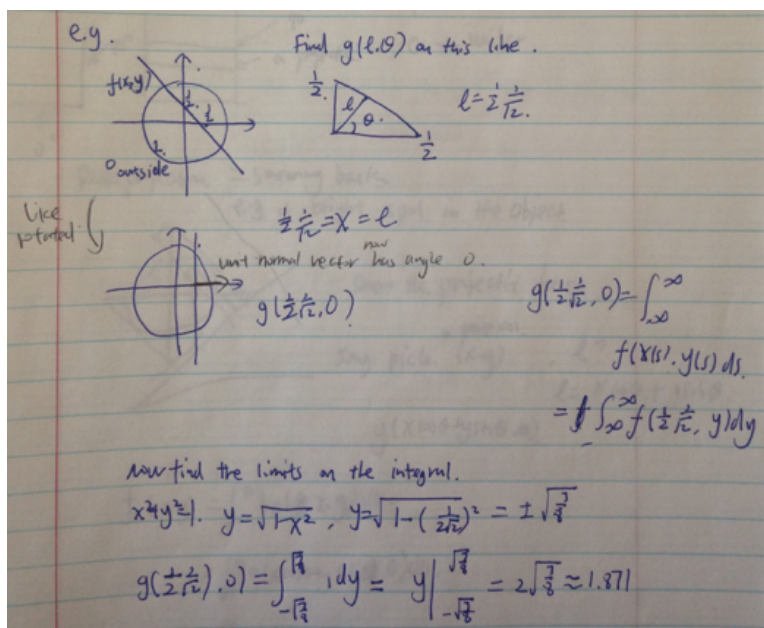 e.g.
Find g(l.θ) on this line.
f(x,y)
1/2
1/2
1
0 outside
1/2
l
θ
1/2
l = 1/2 1/√2.
like
rotated
1/2 1/√2 = x = l
now
unit normal vector has angle 0.
g(1/2 1/√2, 0)
g(1/2 1/√2, 0) = ∫_{-∞}^{∞}
f(x(s), y(s)) ds.
= ∫_{-∞}^{∞} f(1/2 1/√2, y) dy
now find the limits on the integral.
x²+y²=1. y = √(1-x²), y = √(1-(1/(2√2))²) = ± √(7/8)
g(1/2 1/√2), 0) = ∫_{-√(7/8)}^{√(7/8)} 1 dy = y |_{-√(7/8)}^{√(7/8)} = 2√(7/8) ≈ 1.871